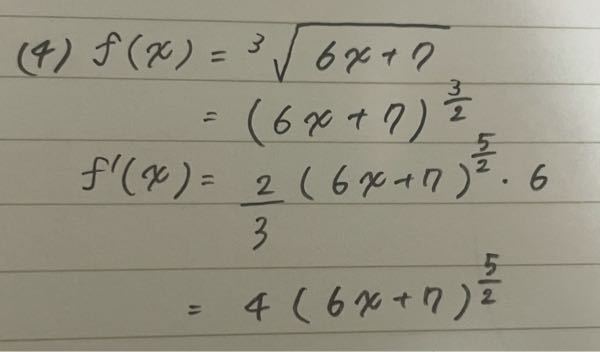 (4) f(x) = ³√(6x+7)
= (6x+7)^(3/2)
f'(x) = 2/3 (6x+7)^(5/2) · 6
= 4 (6x+7)^(5/2)